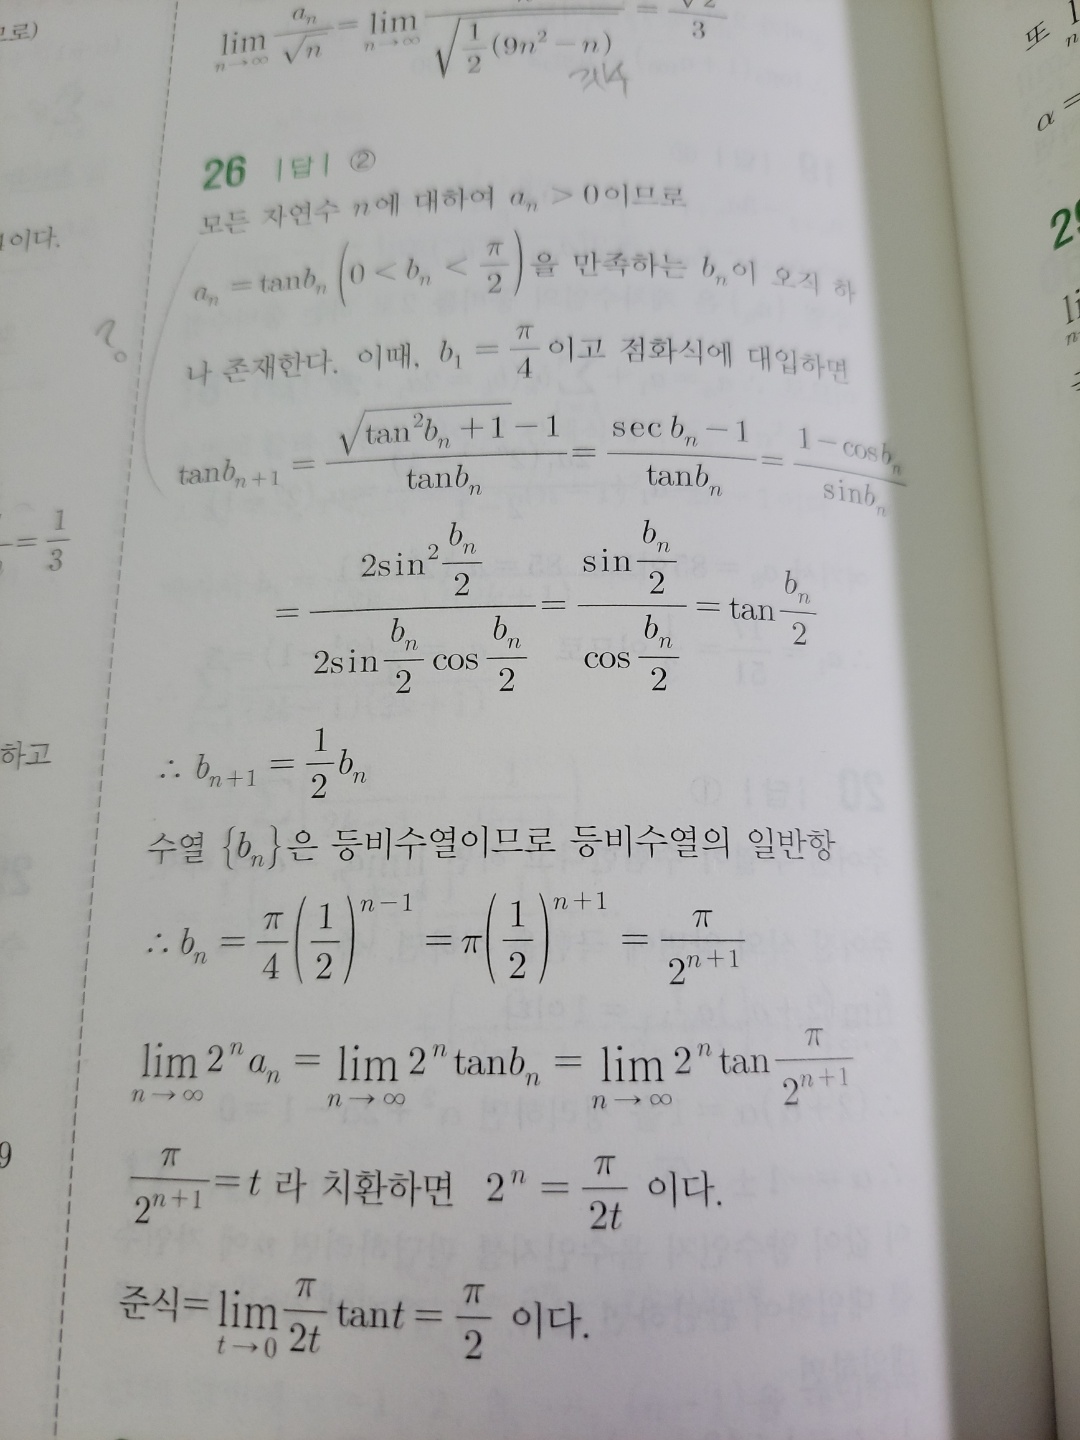 lim n→∞ aₙ/√n = lim n→∞ /√(1/2(9n²−n)) = √2/3
26 |답| ②
모든 자연수 n에 대하여 aₙ > 0이므로
aₙ = tanbₙ (0 < bₙ < π/2)을 만족하는 bₙ이 오직 하
나 존재한다. 이때, b₁ = π/4 이고 점화식에 대입하면
?
tanbₙ₊₁ = (√(tan²bₙ+1) −1)/tanbₙ = (sec bₙ −1)/tanbₙ = (1−cosbₙ)/sinbₙ
= (2sin² bₙ/2)/(2sin bₙ/2 cos bₙ/2) = (sin bₙ/2)/(cos bₙ/2) = tan bₙ/2
∴ bₙ₊₁ = 1/2 bₙ
수열 {bₙ}은 등비수열이므로 등비수열의 일반항
∴ bₙ = π/4 (1/2)ⁿ⁻¹ = π(1/2)ⁿ⁺¹ = π/2ⁿ⁺¹
lim n→∞ 2ⁿaₙ = lim n→∞ 2ⁿtanbₙ = lim n→∞ 2ⁿtan π/2ⁿ⁺¹
π/2ⁿ⁺¹ = t 라 치환하면 2ⁿ = π/2t 이다.
준식= lim t→0 π/2t tant = π/2 이다.
이다.
= 1/3
하고
9
또
α =